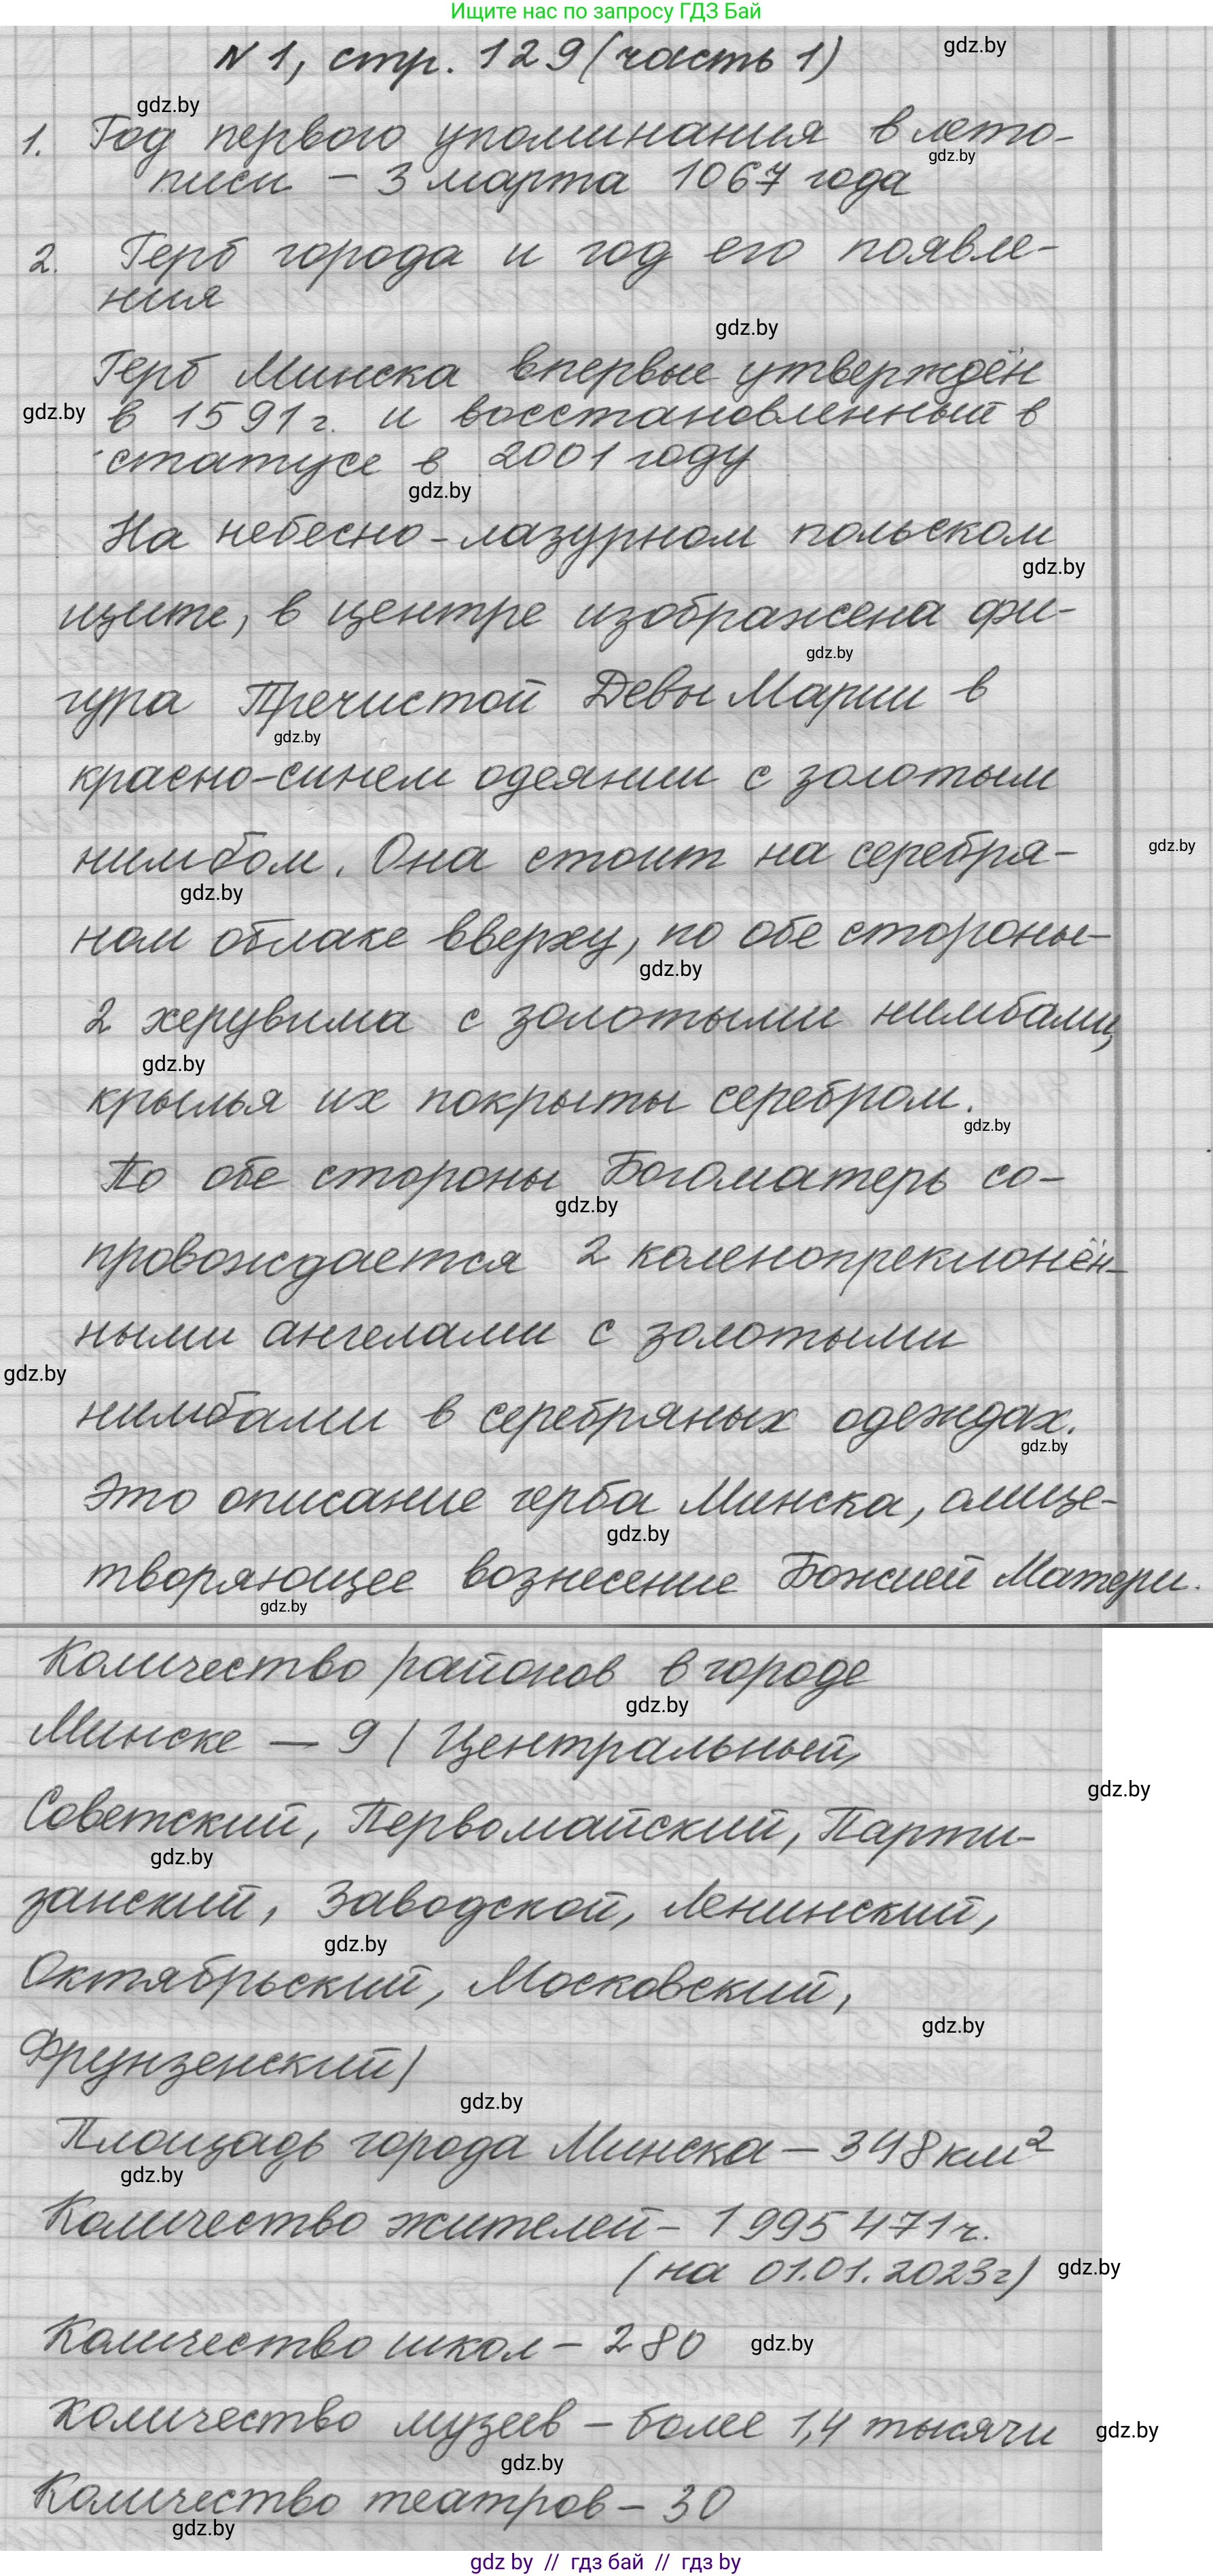 Ищите нас по запросу ГДЗ Бай
№1, стр. 129 (часть 1)
gdz.by
gdz.by
1. Год первого упоминания в лето-
gdz.by
писи – 3 марта 1067 года
2. Герб города и год его появле-
ния
gdz.by
Герб Минска впервые утверждён
gdz.by
в 1591 г. и восстановленный в
статусе в 2001 году
gdz.by
На небесно-лазурном польском
gdz.by
щите, в центре изображена фи-
gdz.by
гура Пречистой Девы Марии в
gdz.by
красно-синем одеянии с золотым
нимбом. Она стоит на серебря-
gdz.by
gdz.by
ном облаке вверху, по обе стороны-
gdz.by
2 херувима с золотыми нимбами,
gdz.by
крылья их покрыты серебром.
gdz.by
По обе стороны Богоматерь со-
gdz.by
провождается 2 коленопреклонён-
ными ангелами с золотыми
gdz.by
нимбами в серебряных одеждах.
gdz.by
Это описание герба Минска, олице-
gdz.by
творяющее вознесение Божией Матери.
gdz.by
Количество районов в городе
gdz.by
Минске — 9 ( Центральный,
gdz.by
Советский, Первомайский, Парти-
gdz.by
занский, Заводской, Ленинский,
gdz.by
Октябрьский, Московский,
gdz.by
Фрунзенский)
gdz.by
Площадь города Минска – 348 км²
gdz.by
Количество жителей – 1 995 471 ч.
(на 01.01.2023г)
gdz.by
Количество школ – 280
gdz.by
Количество музеев – более 1,4 тысячи
gdz.by
gdz.by
Количество театров – 30
gdz.by
gdz by // гдз бай // гдз by